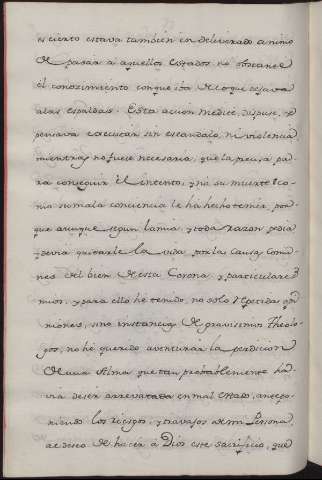 es cierto estava tambien en deliverado animo
de pasar a aquellos Estados no obstante
el conozimiento con que iba de lo que dejava
a las espaldas. Esta accion medité, dispuse, y
pensava executar sin escandalo, ni violencia,
mientras no fuese necesaria, que la precisa pa-
ra conseguir el intento, y no su muerte co-
mo su mala conciencia le ha hecho temer, por
que aunque segun la mia, y toda razon pedia
y devia quitarle la vida por las Causas Comu-
nes del bien de esta Corona, y particulares
mios, y para ello he tenido, no solo repetidas opi-
niones, sino instancias de gravisimos Theolo-
gos, no he querido aventurar la perdicion
de una Alma que tan probablemente ha-
via de ser arrevatada en mal estado, antepo-
niendo los riesgos, y travajos de mi Persona,
al deseo de hacer a Dios este sacrificio, que